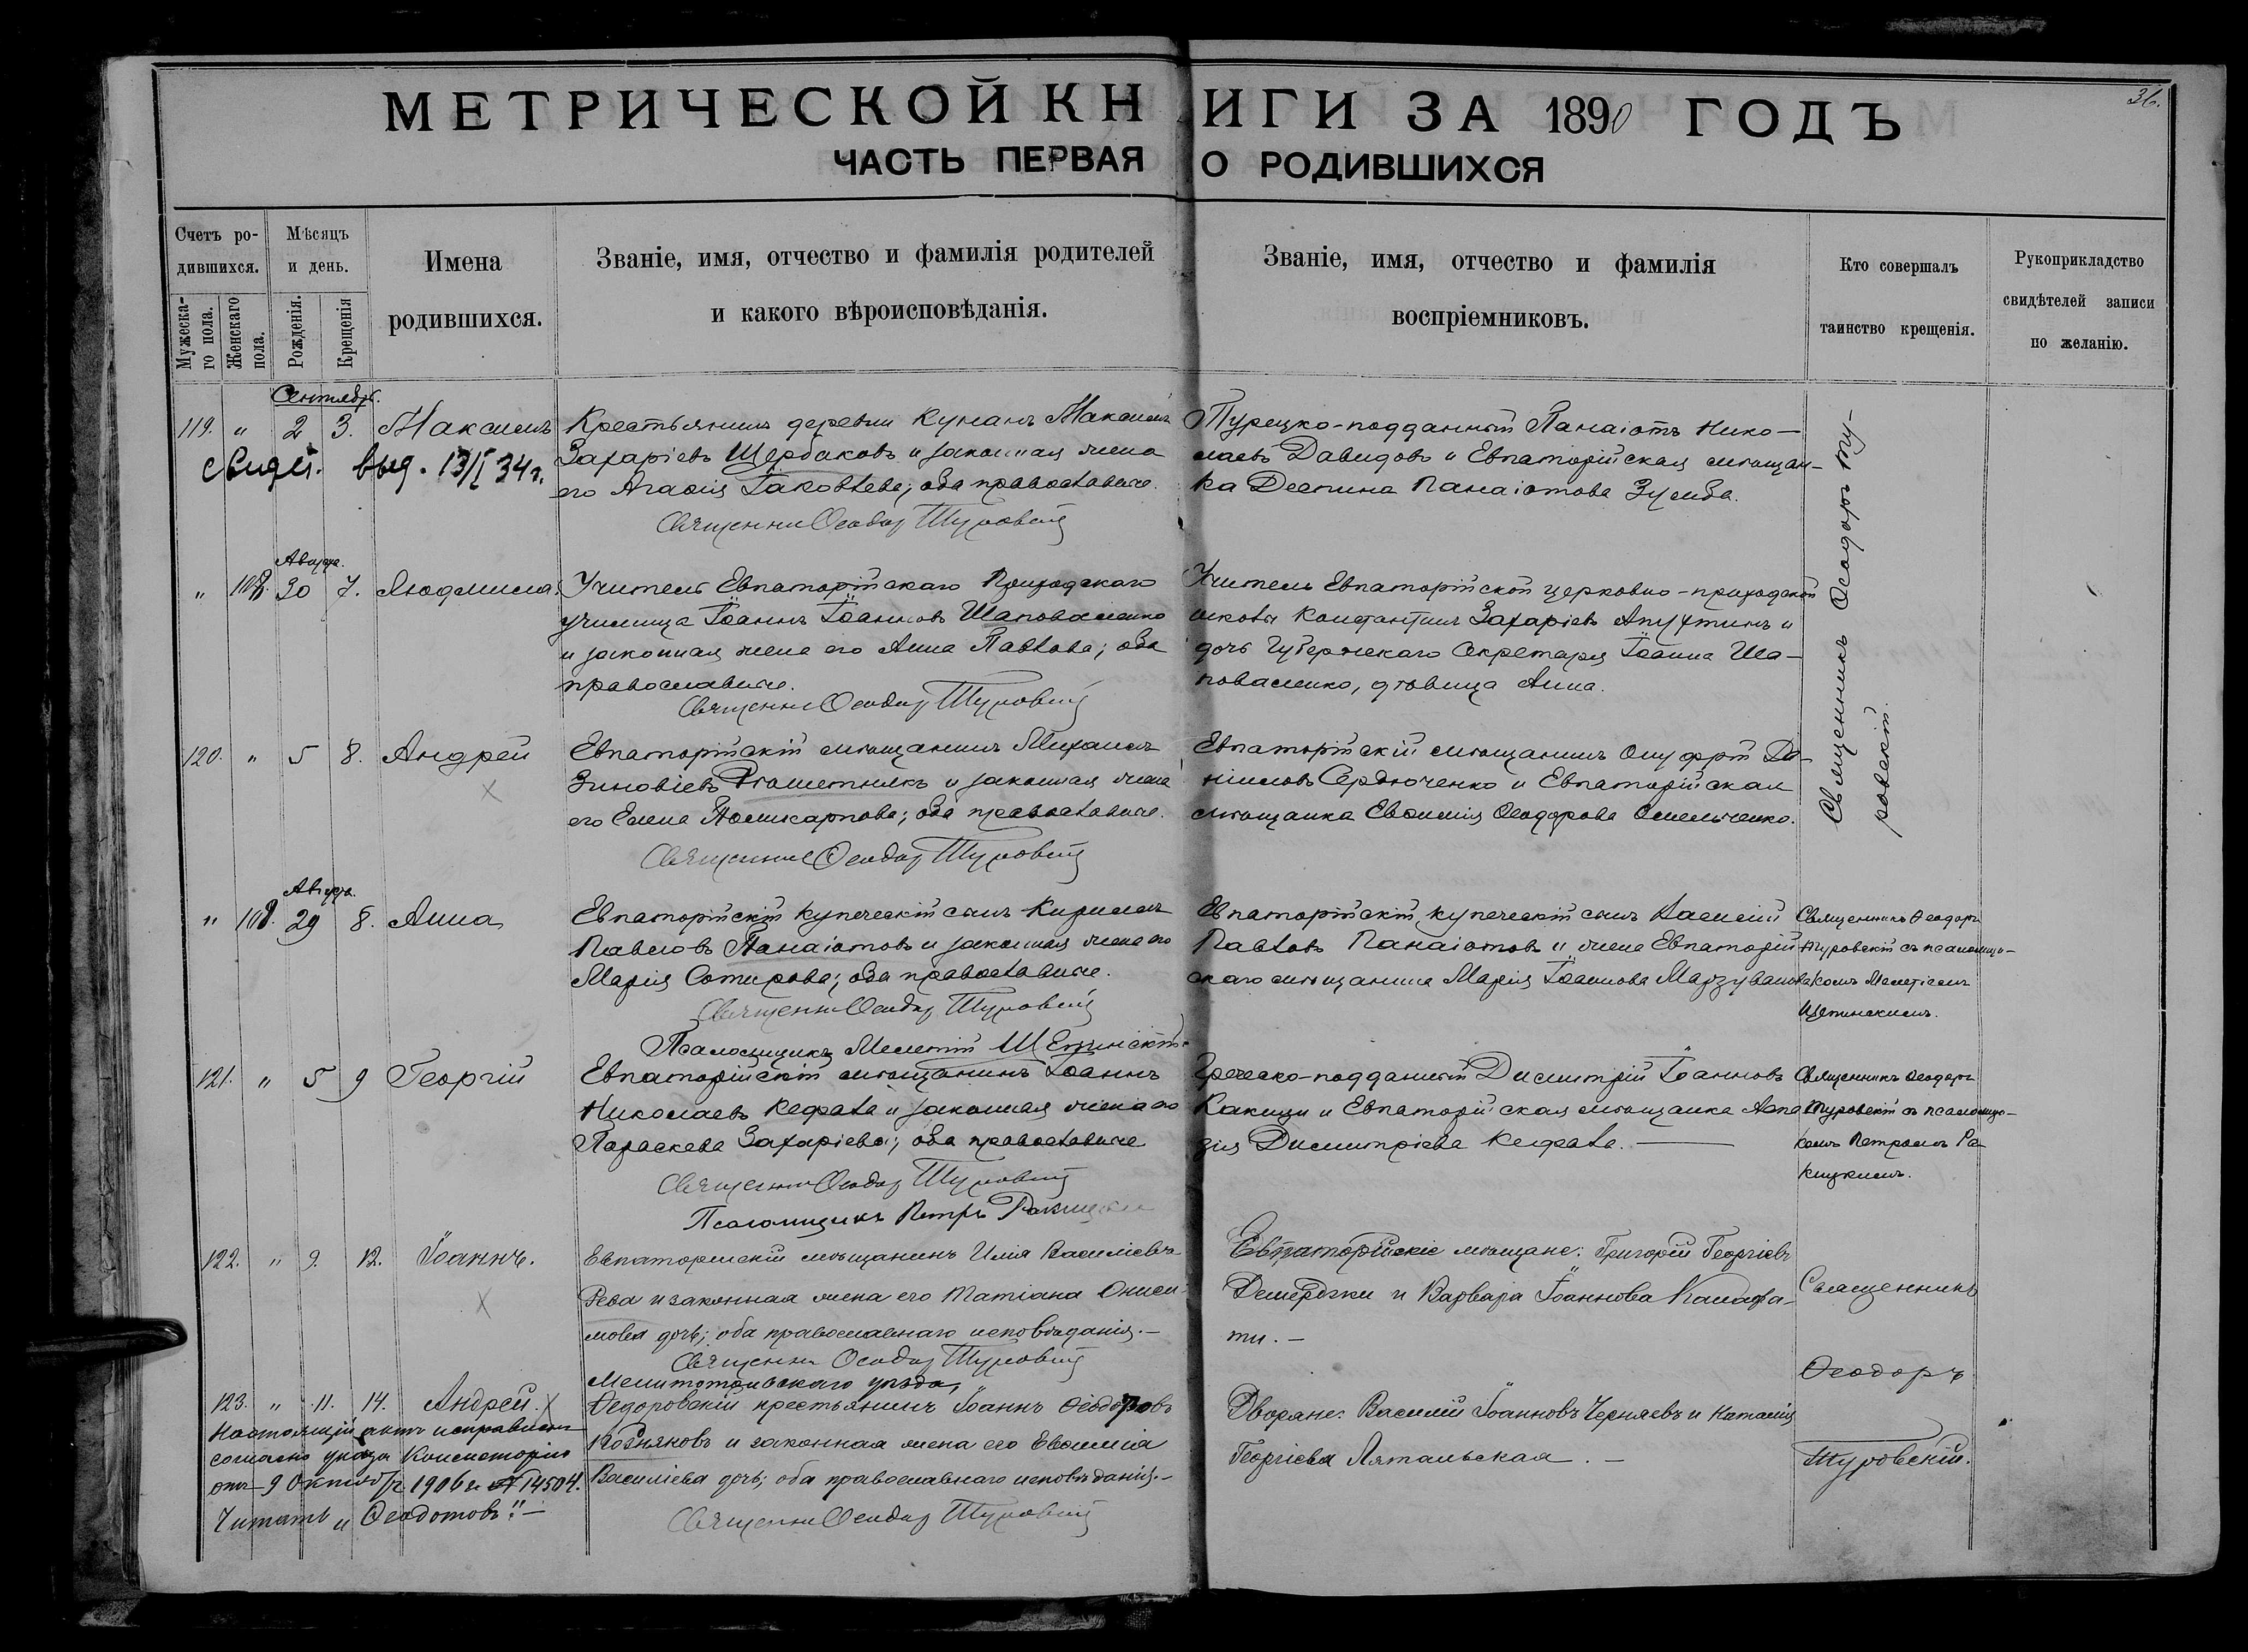 МЕТРИЧЕСКОЙ КНИГИ ЗА 1890 ГОДЪ
36.
ЧАСТЬ ПЕРВАЯ О РОДИВШИХСЯ
Счетъ ро-
дившихся.
Мужеска-
го пола.
Женскаго
пола.
Мѣсяцъ
и день.
Рожденія.
Крещенія
Имена
родившихся.
Званіе, имя, отчество и фамилія родителей
и какого вѣроисповѣданія.
Званіе, имя, отчество и фамилія
воспріемниковъ.
Кто совершалъ
таинство крещенія.
Рукоприкладство
свидѣтелей записи
по желанію.
Сентябр.
119. " 2 3. Максимъ
свидет. выд. 13/I 34 г.
Крестьянинъ деревни Куманъ Максимъ
Захаріевъ Щербаковъ и законная жена
его Агафія Іаковлева; оба православные.
Священни Ѳеодор Туровскій
Турецко-подданный Панаіотъ Нико-
лаевъ Давидовъ и Евпаторійская мѣщан-
ка Деспина Панаіотова
Священникъ Ѳеодоръ Ту-
ровскій.
Августа.
" 30 7. Людмила.
Учитель Евпаторійскаго Приходскаго
училища Іоаннъ Іоанновъ Шаповаленко
и законная жена его Анна Павлова; оба
православные.
Священни Ѳеодор Туровскій
Учитель Евпаторійской церковно-приходской
школы Константинъ Захаріевъ Апухтинъ и
дочь Губернскаго Секретаря Іоанна Ша-
поваленко, дѣвица Анна.
120. " 5 8. Андрей
Евпаторійскій мѣщанинъ Михаилъ
Зиновіевъ Рѣшетнякъ и законная жена
его Елена Поликарпова; оба православные.
Священни Ѳеодор Туровскій
Евпаторійскій мѣщанинъ Онуфрій Да-
ніиловъ Сердюченко и Евпаторійская
мѣщанка Евфимія Ѳеодорова Омельченко.
Августа.
" 108. 29 8. Анна
Евпаторійскій купеческій сынъ Кириллъ
Павловъ Панаіотовъ и законная жена его
Марія Сотирова; оба православные.
Священни Ѳеодор Туровскій
Псаломщикъ Мелетій Щепинскій
Евпаторійскій купеческій сынъ Василій
Павловъ Панаіотовъ и жена Евпаторій-
скаго мѣщанина Марія Іоаннова Марзуванова
Священникъ Ѳеодоръ
Туровскій съ псаломщи-
комъ Мелетіемъ
Щепинскимъ.
121. " 5 9 Георгій
Евпаторійскій мѣщанинъ Іоаннъ
Николаевъ Кефала и законная жена его
Параскева Захаріева; оба православные
Священни Ѳеодор Туровскій
Псаломщикъ Петръ Ракицкій
Греческо-подданный Димитрій Іоанновъ
Какици и Евпаторійская мѣщанка Аспа-
зія Димитріева Кефала.
Священникъ Ѳеодоръ
Туровскій съ псаломщи-
комъ Петромъ Ра-
кицкимъ.
122. " 9. 12. Іоаннъ.
Евпаторійскій мѣщанинъ Илія Василіевъ
Рева и законная жена его Татіана Ониси-
мова дочь; оба православнаго исповѣданія.-
Священни Ѳеодор Туровскій
Евпаторійскіе мѣщане: Григорій Георгіевъ
Демерджи и Варвара Іоаннова Калафа-
ти.-
Священникъ
Ѳеодоръ
Туровскій.
123. " 11. 14. Андрей.
Мелитопольскаго уѣзда,
Ѳедоровскій крестьянинъ Іоаннъ Ѳеодоровъ
Позняковъ и законная жена его Евфимія
Василіева дочь; оба православнаго исповѣданія.-
Священни Ѳеодор Туровскій
Дворяне: Василій Іоанновъ Черняевъ и Наталія
Георгіева Лятальская.-
Настоящій актъ исправленъ
согласно указа Консисторіи
отъ 9 Октября 1906 г. № 14504.
Читать „Ѳеодотовъ"!-